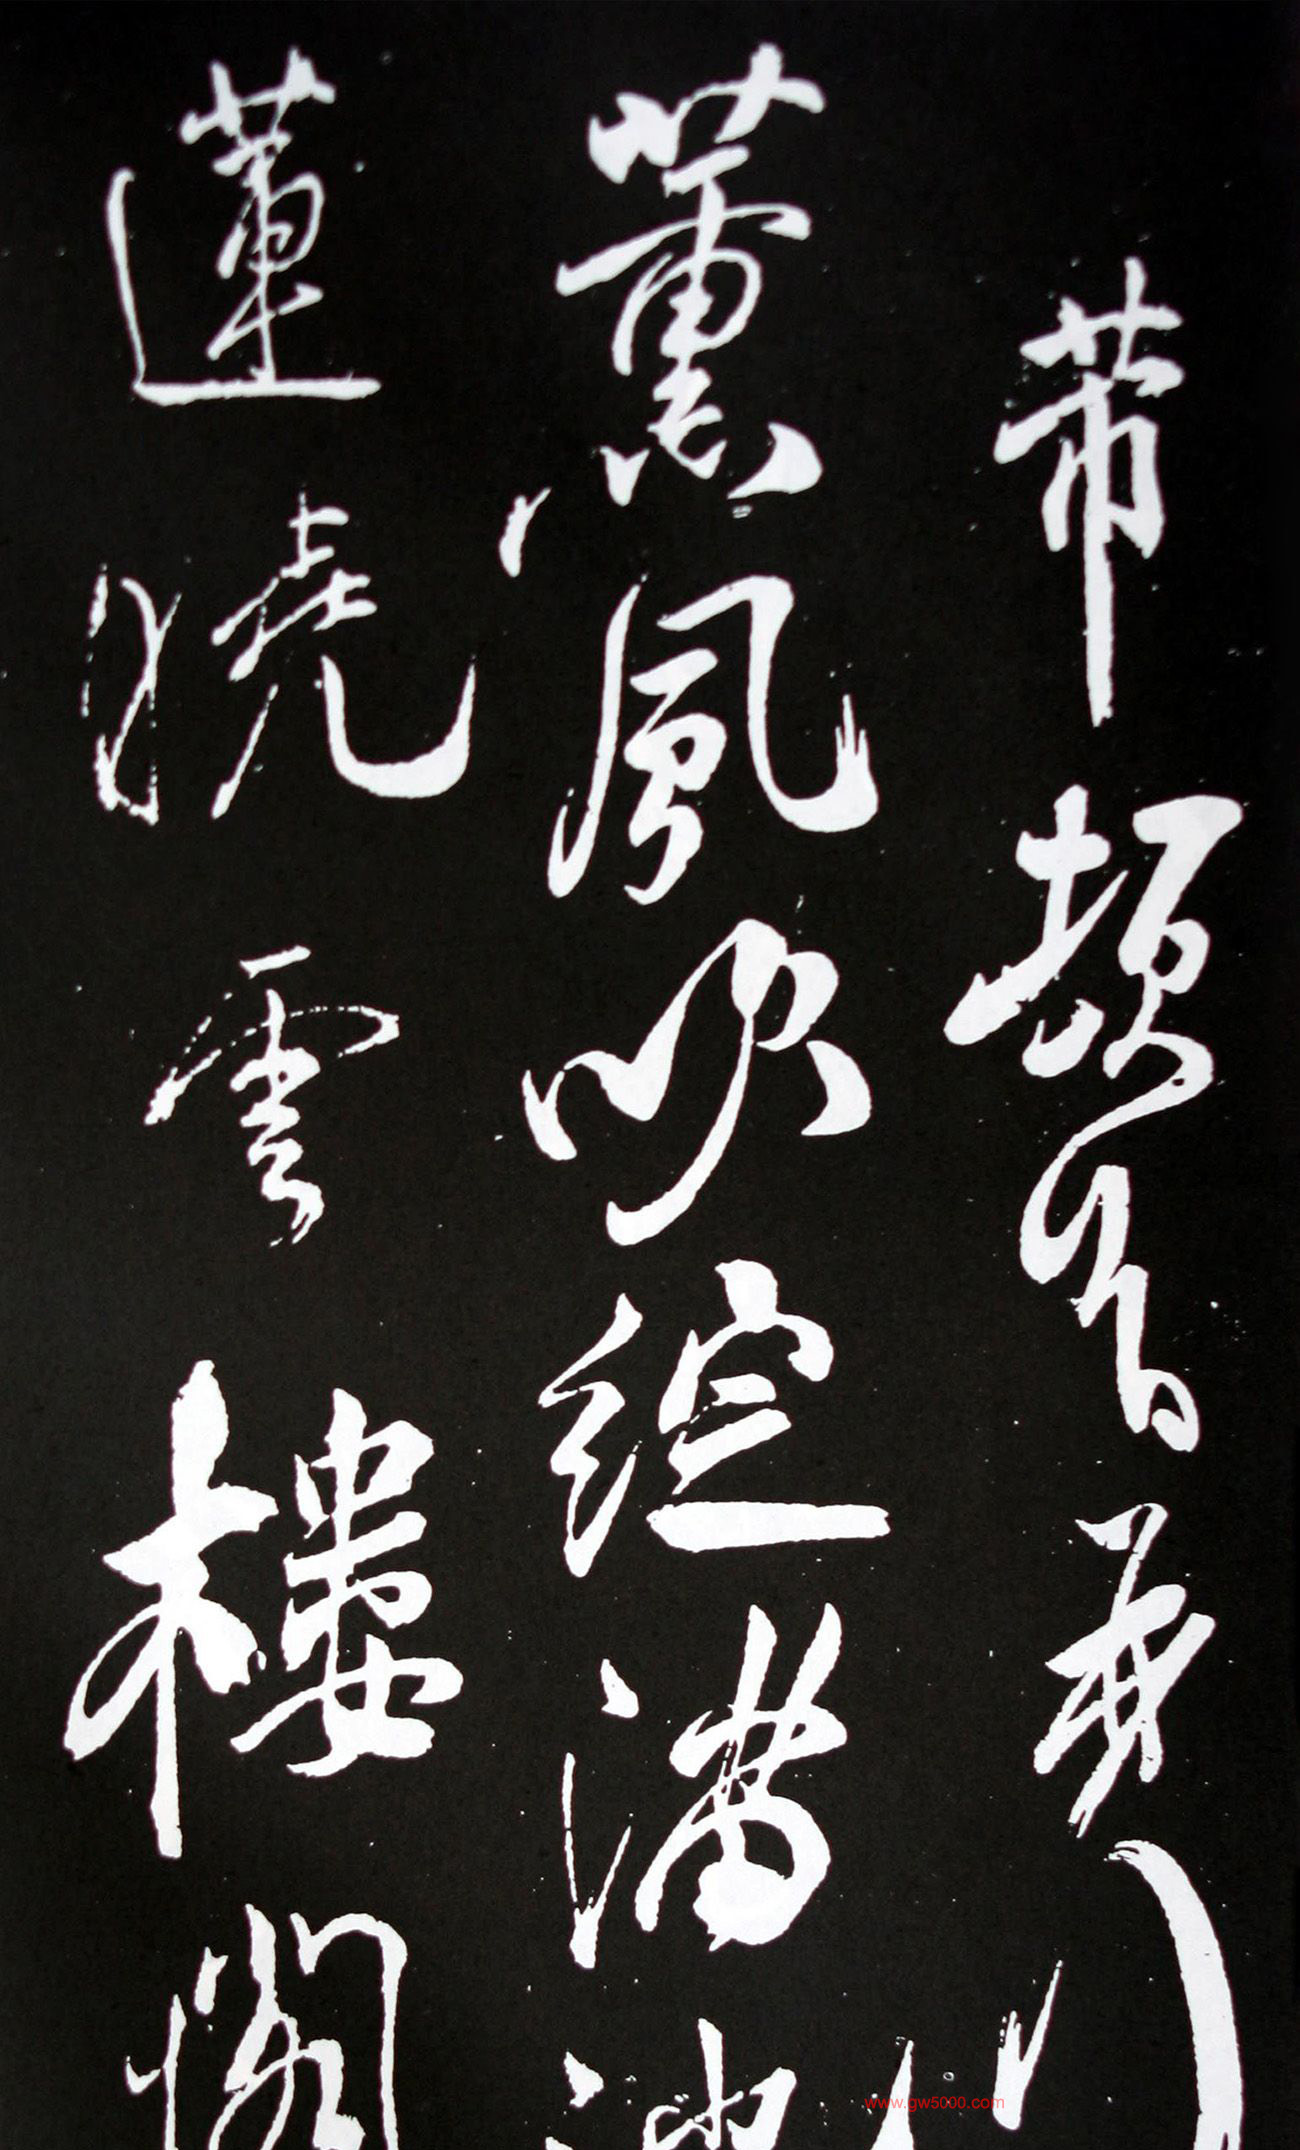 芾頓首
薰風吹綻滿池
蓮曉雲樓閣
www.gw5000.com